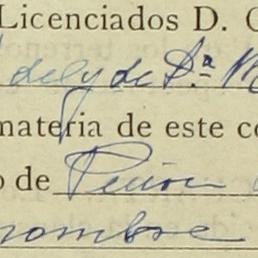 Licenciados D.
de Dª
materia de este co
o de Peñon
nombre